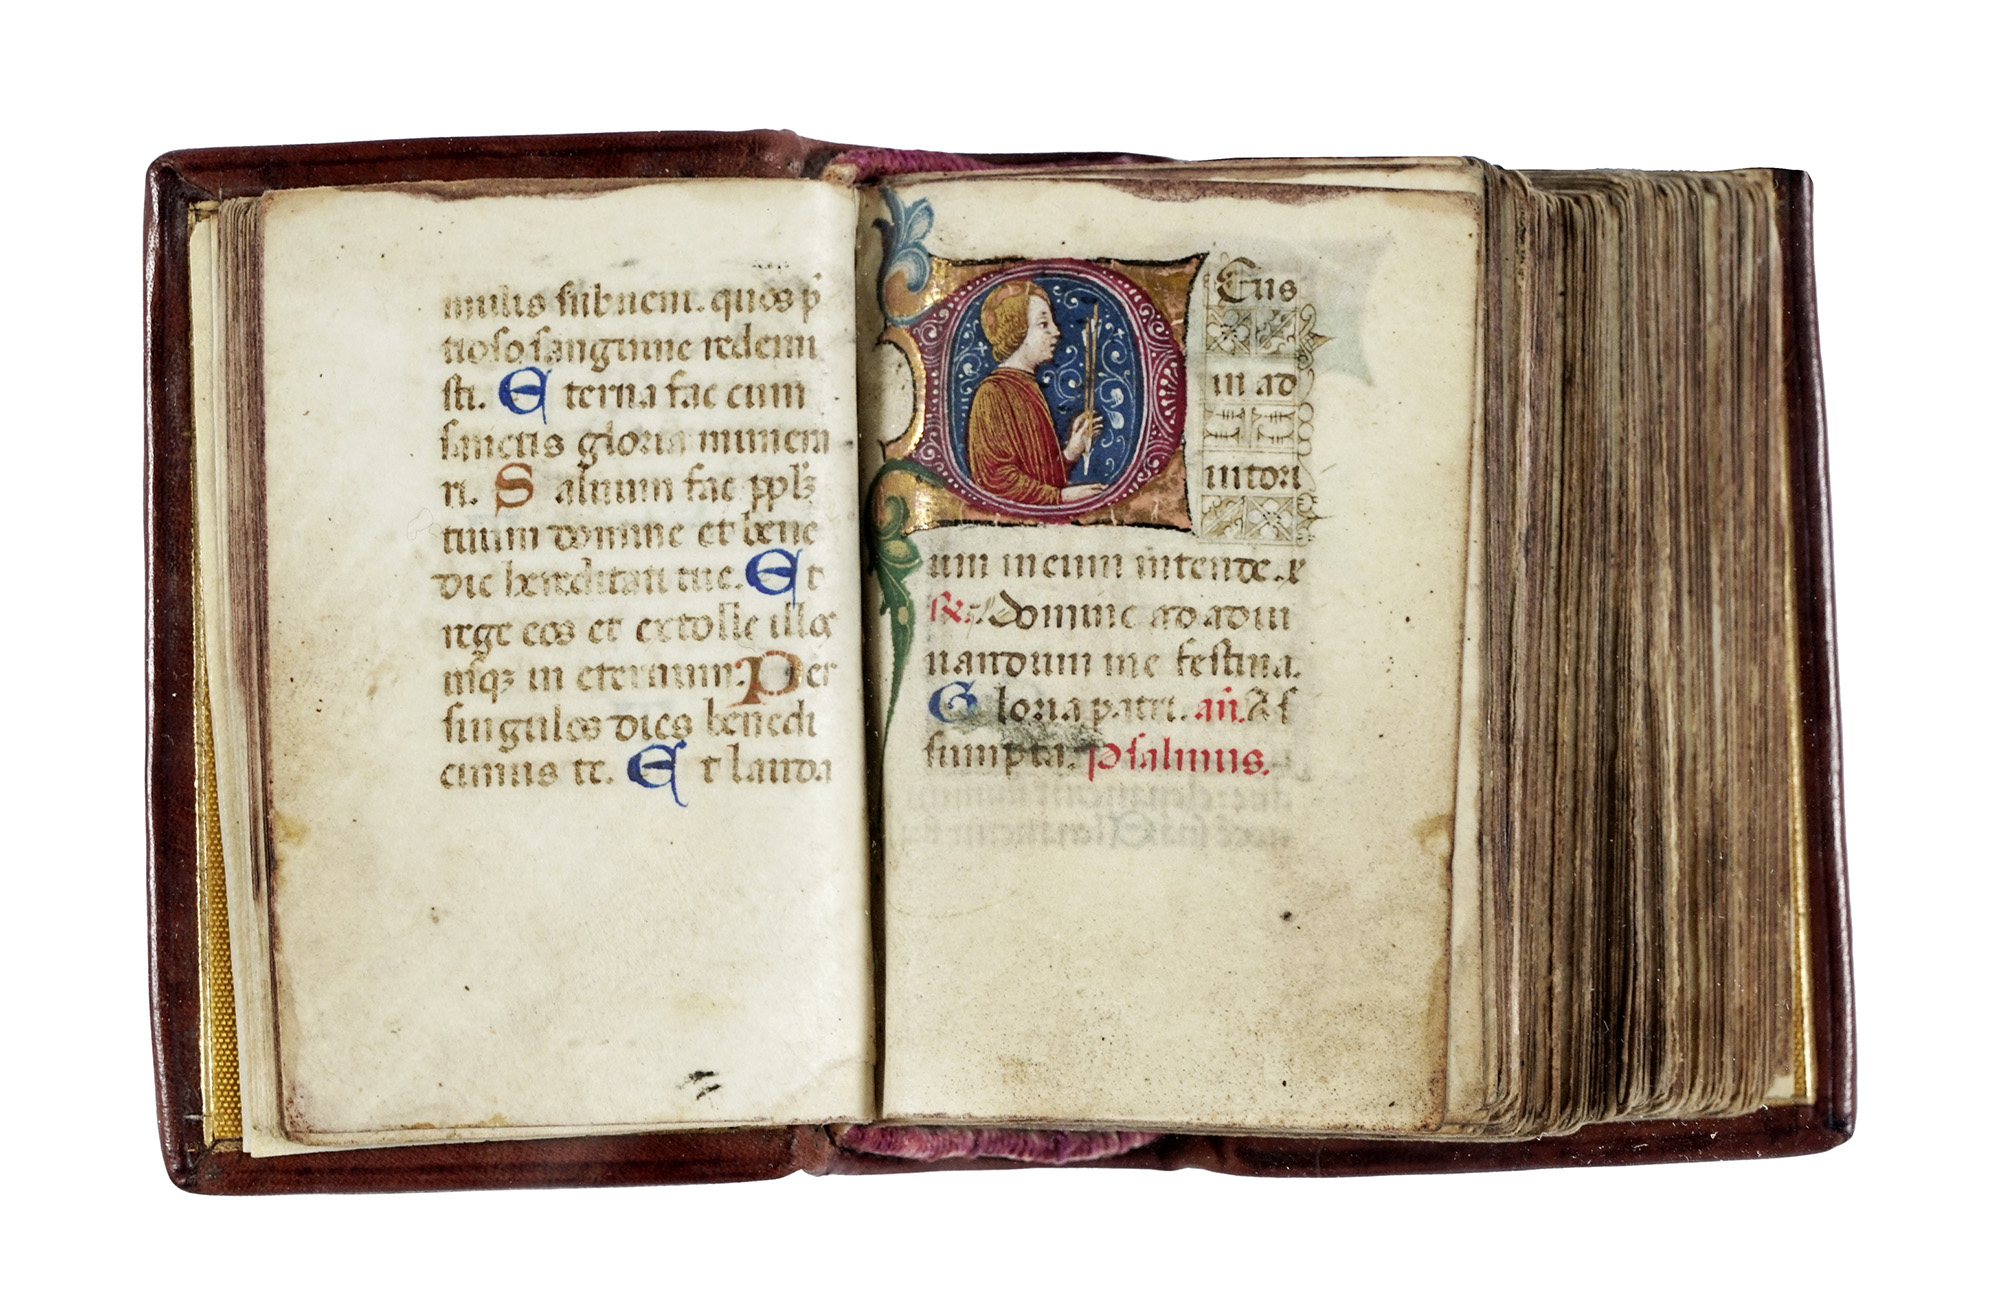 mulis subueni. quos p̄
tioso sanguine redemi
sti. Eterna fac cum
sanctis gloria munera
ri. Saluum fac pplꝫ
tuum domine et bene
dic hereditati tue. Et
rege eos et extolle illos
usqꝫ in eternum. Per
singulos dies benedi
cimus te. Et lauda
Deus
in ad
iutori
um meum intende. ꝶ
Domine ad adiu
uandum me festina.
Gloria patri. an̄. As
sumpta. Psalmus.